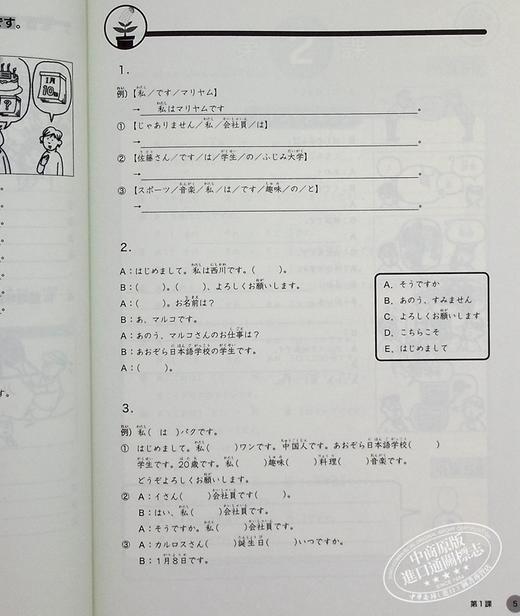 です。
1月
10
?
1.
例）【私／です／マリヤム】
→ 私はマリヤムです 。
① 【じゃありません／私／会社員／は】
→ 。
② 【佐藤さん／です／は／学生／の／ふじみ大学】
→ 。
③ 【スポーツ／音楽／私／は／です／趣味／の／と】
→ 。
2.
A：はじめまして。私は西川です。（　　）。
B：（　　）。（　　）、よろしくお願いします。
A：（　　）。お名前は？
B：あ、マルコです。
A：あのう、マルコさんのお仕事は？
B：あおぞら日本語学校の学生です。
A：（　　）。
A、そうですか
B、あのう、すみません
C、よろしくお願いします
D、こちらこそ
E、はじめまして
3.
例）私（　は　）パクです。
① はじめまして。私（　　）ワンです。中国人です。あおぞら日本語学校（　　）
学生です。20歳です。私（　　）趣味（　　）料理（　　）音楽です。
どうぞよろしくお願いします。
② A：イさん（　　）会社員です（　　）。
B：はい、私（　　）会社員です。
A：そうですか。私（　　）会社員です。
③ A：カルロスさん（　　）誕生日（　　）いつですか。
B：1月8日です。
す。
中商原版
進口通關標志
第1課 5